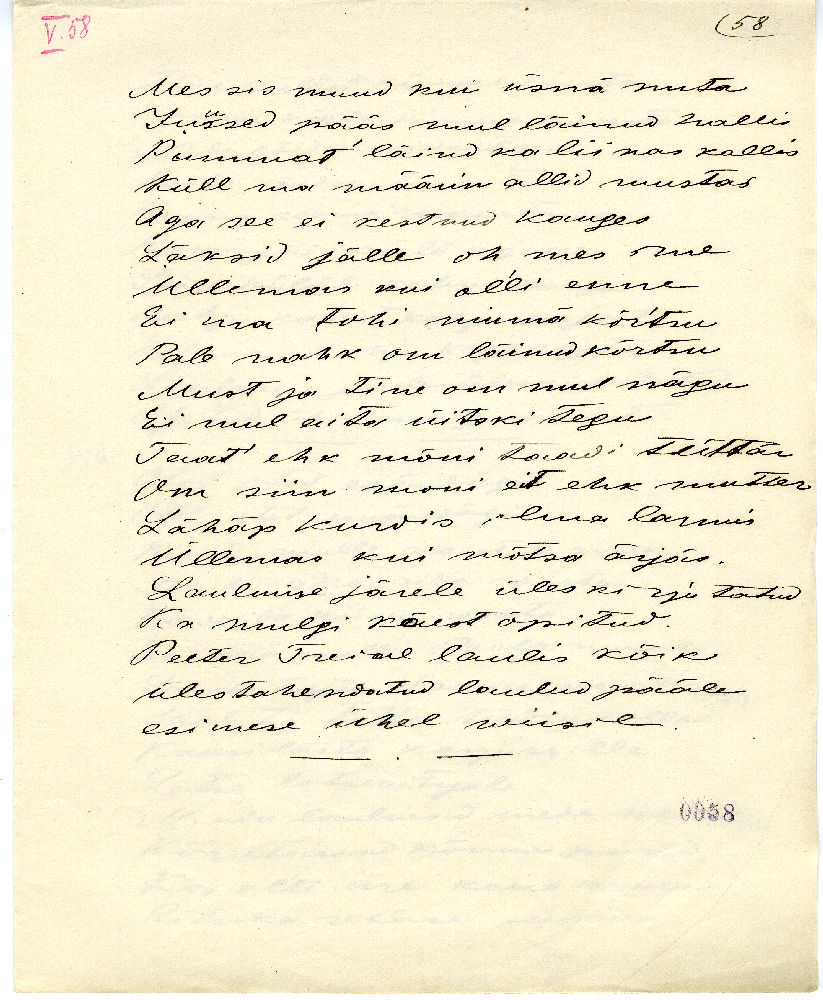 V.58
58
Mes sis muud kui üsnä nuta
Juused pääs mul läinud hallis
Pummat' läind ka liinas kallis
Küll ma määrin allid mustas
Aga see ei kestnud kauges
Läksid jälle oh mes ime
Üllemas kui olli enne
Ei ma tohi minnä kõrtsu
Pale nahk om läinud kõrtsu
Must ja tine om mul nägu
Ei mul aita üitski tegu
Taat' ehk mõni taadi tüttär
Om siin moni eit ehk mutter
Lähäp kurvis ilma larmis
Üllemas kui mõtsa ärjäs.
Laulmise järele üles kirjutatud
Ka mulgi käest õpitud.
Peeter Treial laulis kõik
ülestahendatud laulud pääle
esimese ühel wiisil.
0058